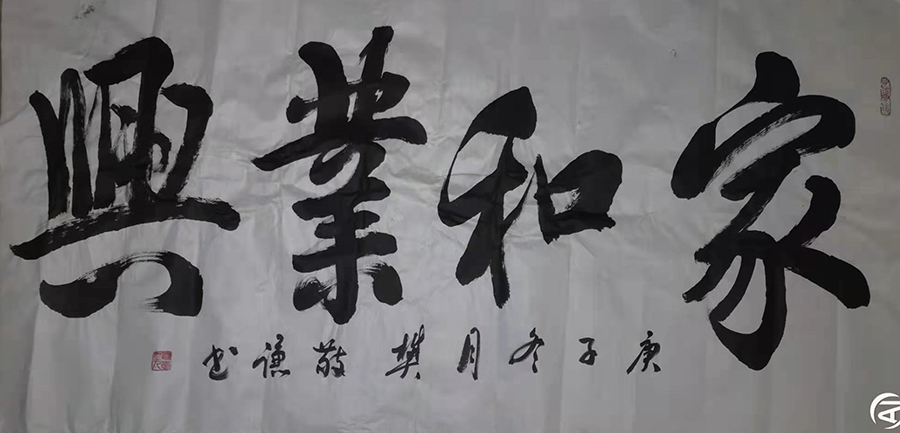 家和業興
庚子冬月樊敬謙书